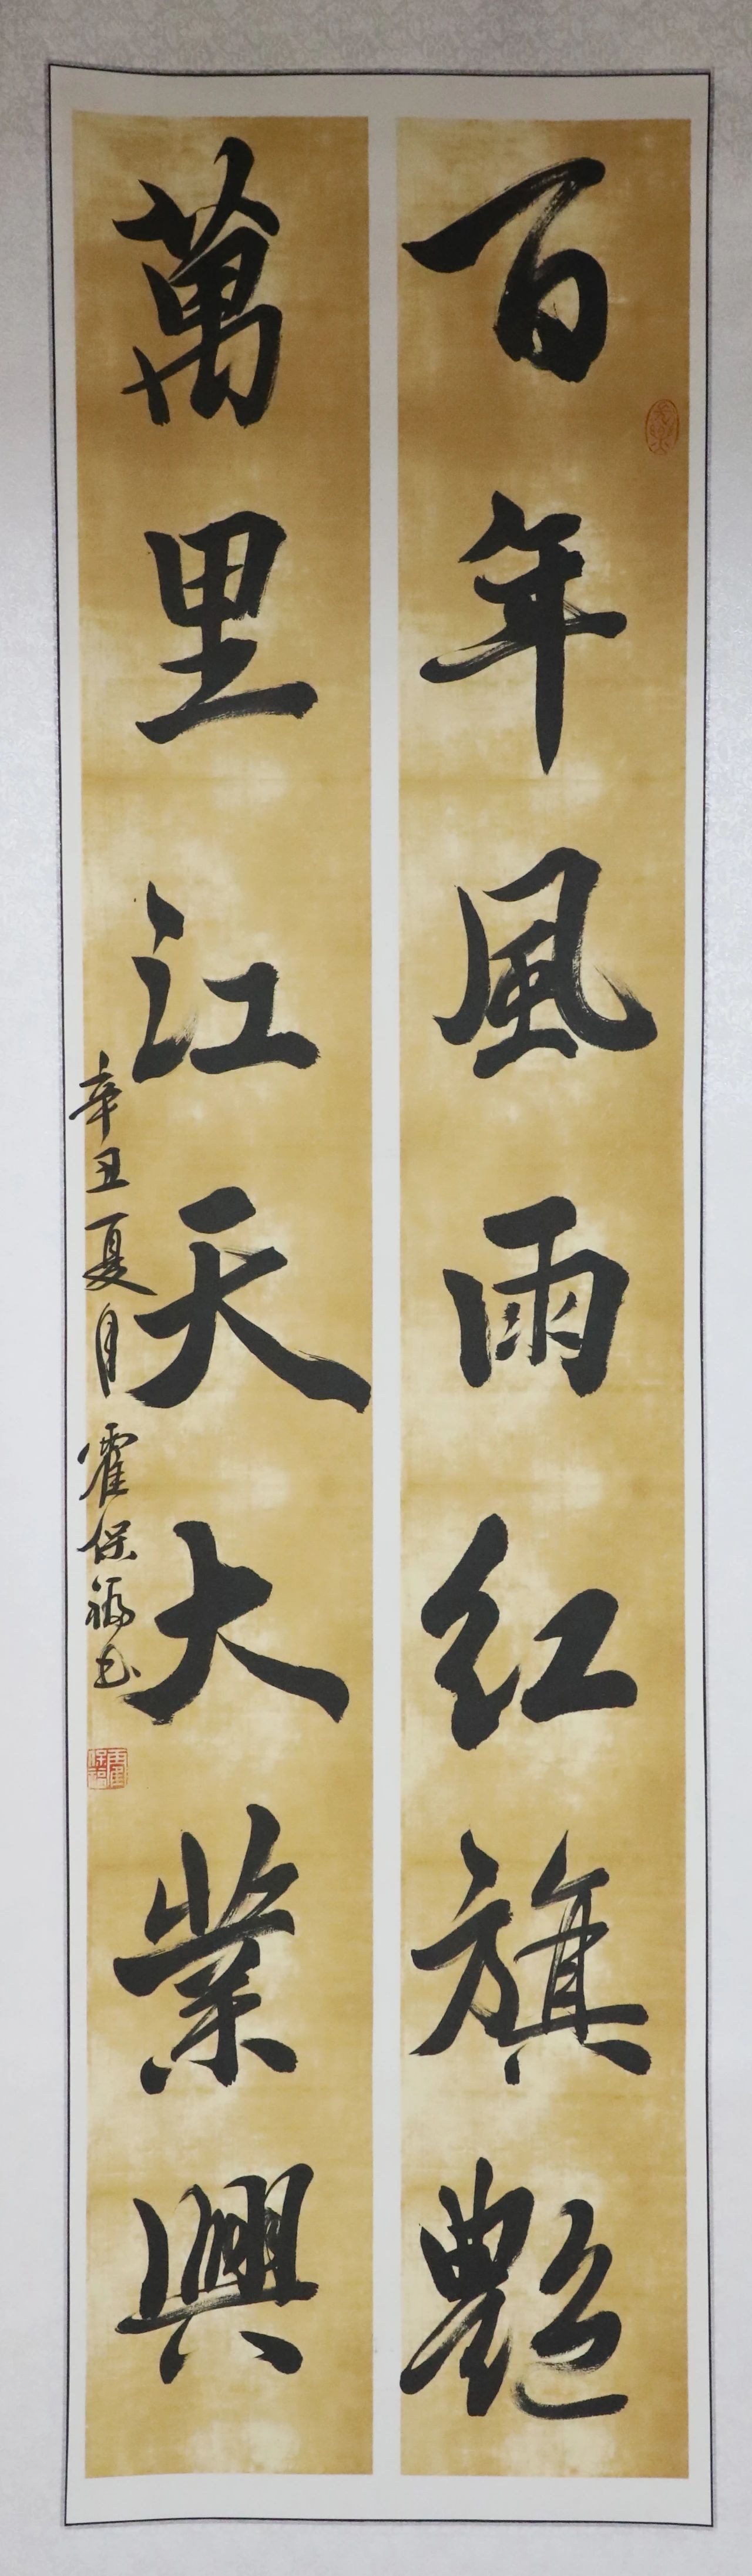 百年風雨红旗艷
萬里江天大業興
辛丑夏月霍保福书
霍保福